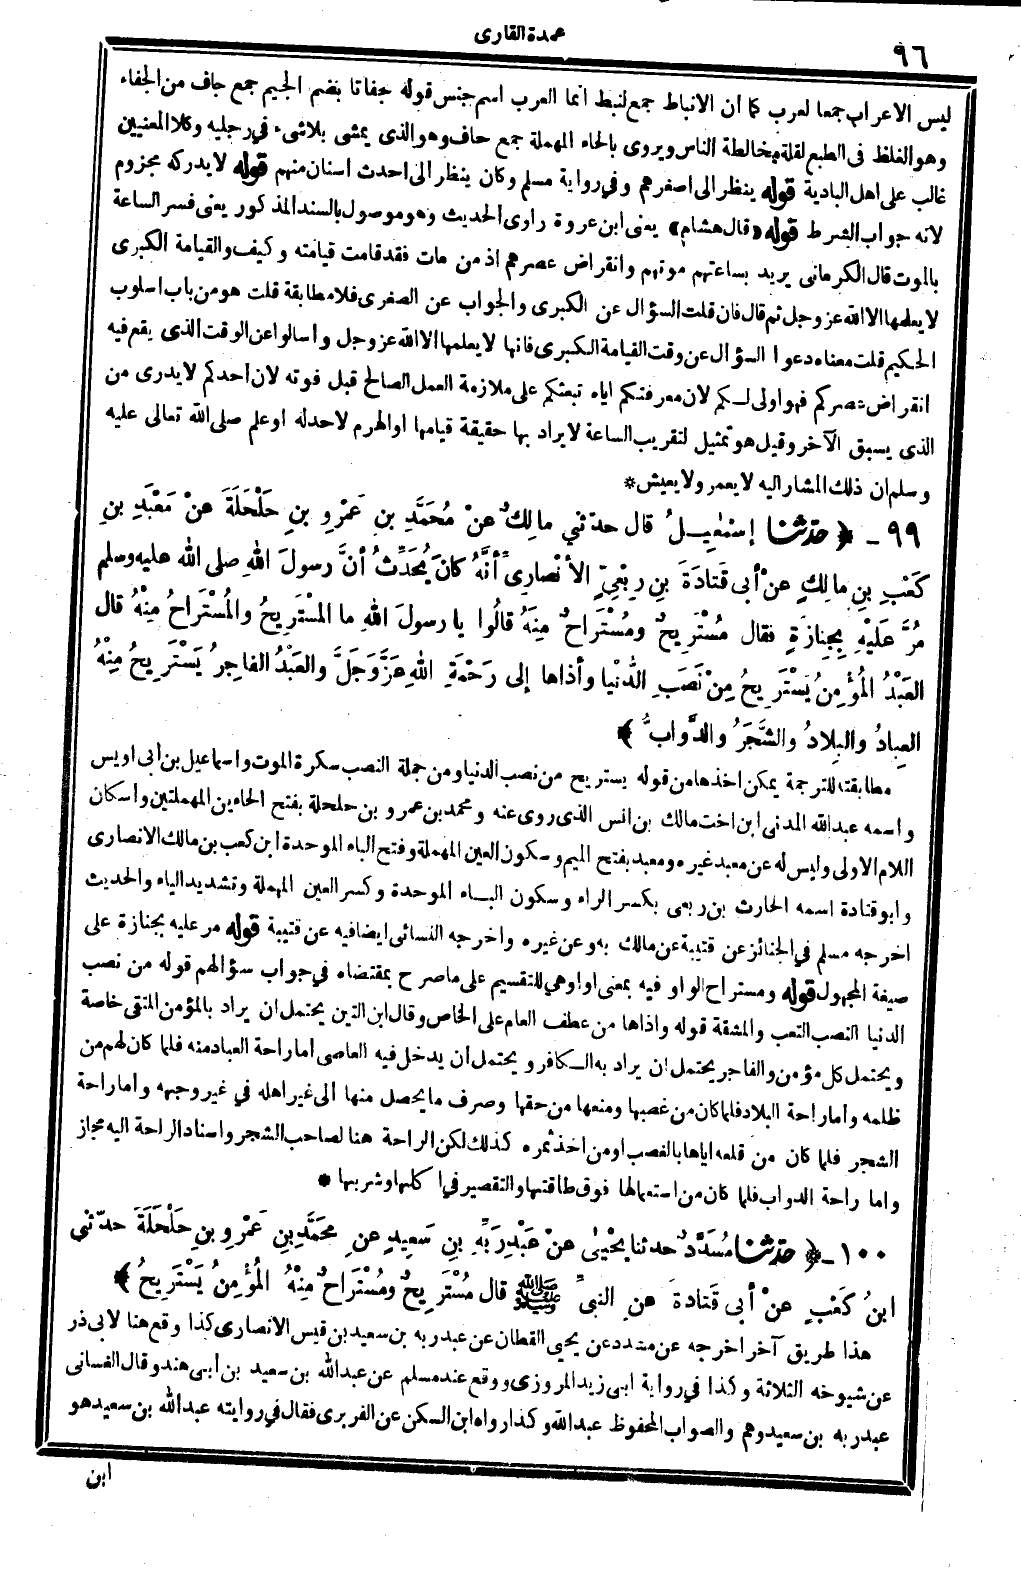 عمدة القارى
٩٦
ليس الاعراب جمعا لعرب كما ان الانباط جمع لنبط انما العرب اسم جنس قوله جفاتا بضم الجيم جمع جاف من الجفاء
وهو الغلظ فى الطبع لقلة مخالطة الناس ويروى بالحاء المهملة جمع حاف وهو الذى يمشى بلا شىء في رجليه وكلا المعنيين
غالب على اهل البادية قوله ينظر الى اصغرهم وفي رواية مسلم وكان ينظر الى احدث اسنان منهم قوله لا يدركه مجزوم
لانه جواب الشرط قوله «قال هشام» يعنى ابن عروة راوى الحديث وهو موصول بالسند المذكور يعنى فسر الساعة
بالموت قال الكرمانى يريد بساعتهم موتهم وانقراض عصرهم اذ من مات فقد قامت قيامته وكيف والقيامة الكبرى
لا يعلمها الا الله عز وجل ثم قال فان قلت السؤال عن الكبرى والجواب عن الصغرى فلا مطابقة قلت هو من باب اسلوب
الحكيم قلت معناه دعوا السؤال عن وقت القيامة الكبرى فانها لا يعلمها الا الله عز وجل واسالوا عن الوقت الذى يقع فيه
انقراض عصركم فهو اولى لكم لان معرفتكم اياه تبعثكم على ملازمة العمل الصالح قبل فوته لان احدكم لا يدرى من
الذى يسبق الآخر وقيل هو تمثيل لتقريب الساعة لا يراد بها حقيقة قيامها او الهرم لا حد له او علم صلى الله تعالى عليه
وسلم ان ذلك المشار اليه لا يعمر ولا يعيش *
٩٩ - ﴿ حدثنا إسْمٰعِيلُ قال حدثني مالِكٌ عنْ مُحَمَّدِ بنِ عَمْرِو بنِ حَلْحَلَةَ عنْ مَعْبَدِ بنِ
كَعْبِ بنِ مالِكٍ عنْ أبى قَتادَةَ بنِ رِبْعِيٍّ الأنْصارِىِّ أنَّهُ كانَ يُحَدِّثُ أنَّ رسولَ اللهِ صلى الله عليه وسلم
مُرَّ عَلَيْهِ بِجِنازَةٍ فقال مُسْتَرِيحٌ ومُسْتَراحٌ مِنْهُ قالُوا يا رسولَ اللهِ ما المُسْتَرِيحُ والمُسْتَراحُ مِنْهُ قال
العَبْدُ المُؤْمِنُ يَسْتَرِيحُ مِنْ نَصَبِ الدُّنْيا وأذاها إلى رَحْمَةِ اللهِ عَزَّ وَجَلَّ والعَبْدُ الفاجِرُ يَسْتَرِيحُ مِنْهُ
العِبادُ والبِلادُ والشَّجَرُ والدَّوابُّ ﴾
مطابقته للترجمة يمكن اخذها من قوله يستريح من نصب الدنيا ومن جملة النصب سكرة الموت واسماعيل بن أبى اويس
واسمه عبدالله المدنى ابن اخت مالك بن انس الذى روى عنه ومحمد بن عمرو بن حلحلة بفتح الحاءين المهملتين واسكان
اللام الاولى وليس له عن معبد غيره ومعبد بفتح الميم وسكون العين المهملة وفتح الباء الموحدة ابن كعب بن مالك الانصارى
وابو قتادة اسمه الحارث بن ربعى بكسر الراء وسكون الباء الموحدة وكسر العين المهملة وتشديد الياء والحديث
اخرجه مسلم في الجنائز عن قتيبة عن مالك به وعن غيره واخرجه النسائى ايضا فيه عن قتيبة قوله مر عليه بجنازة على
صيغة المجهول قوله ومستراح الواو فيه بمعنى او او هي للتقسيم على ما صرح بمقتضاه في جواب سؤالهم قوله من نصب
الدنيا النصب التعب والمشقة قوله واذاها من عطف العام على الخاص وقال ابن التين يحتمل ان يراد بالمؤمن المتقى خاصة
ويحتمل كل مؤمن والفاجر يحتمل ان يراد به الكافر ويحتمل ان يدخل فيه العاصى اما راحة العباد منه فلما كان لهم من
ظلمه واما راحة البلاد فلما كان من غصبها ومنعها من حقها وصرف ما يحصل منها الى غير اهله في غير وجهه واما راحة
الشجر فلما كان من قلعه اياها بالغصب او من اخذ ثمره كذلك لكن الراحة هنا لصاحب الشجر واسناد الراحة اليه مجاز
واما راحة الدواب فلما كان من استعمالها فوق طاقتها والتقصير في اكلها وشربها *
١٠٠ - ﴿ حدثنا مُسَدَّدٌ حدثنا يَحْيىٰ عنْ عَبْدِ رَبِّهِ بنِ سَعِيدٍ عنِ مُحَمَّدِ بنِ عَمْرِو بنِ حَلْحَلَةَ حدّثني
ابنُ كَعْبٍ عنْ أبى قَتادَةَ عنِ النبيِّ ﷺ قال مُسْتَرِيحٌ ومُسْتَراحٌ مِنْهُ المُؤْمِنُ يَسْتَرِيحُ ﴾
هذا طريق آخر اخرجه عن مسدد عن يحيى القطان عن عبد ربه بن سعيد بن قيس الانصارى كذا وقع هنا لابى ذر
عن شيوخه الثلاثة وكذا في رواية ابى زيد المروزى ووقع عند مسلم عن عبدالله بن سعيد بن أبى هند وقال الغسانى
عبد ربه بن سعيد وهم والصواب المحفوظ عبدالله وكذا رواه ابن السكن عن الفربرى فقال في روايته عبدالله بن سعيد هو
ابن